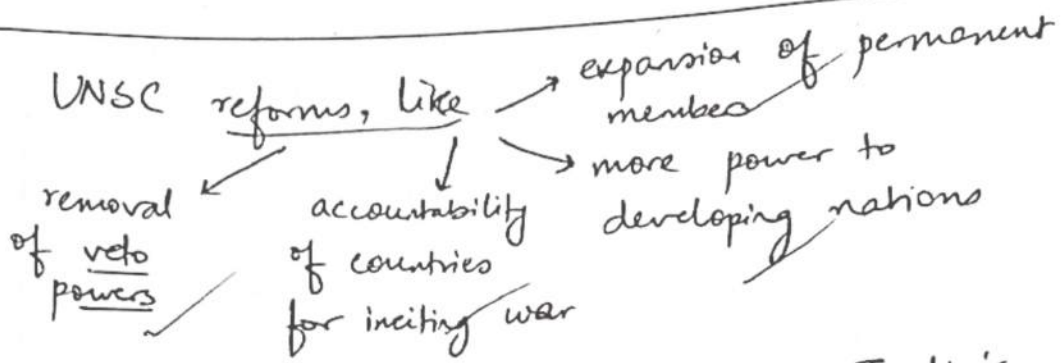 UNSC reforms, like
expansion of permanent
member
more power to
developing nations
removal
of veto
powers
accountability
of countries
for inciting war